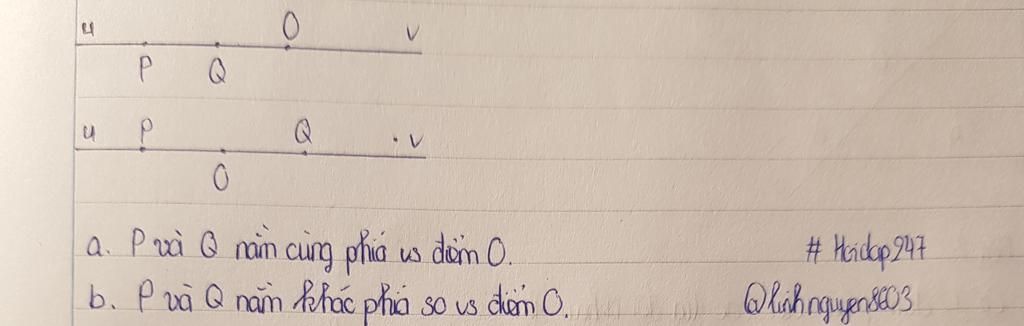 u O v
P Q
u P Q v
O
a. P và Q nằm cùng phía vs điểm O. # Hoidap247
b. P và Q nằm khác phía so vs điểm O. @linhnguyen8603